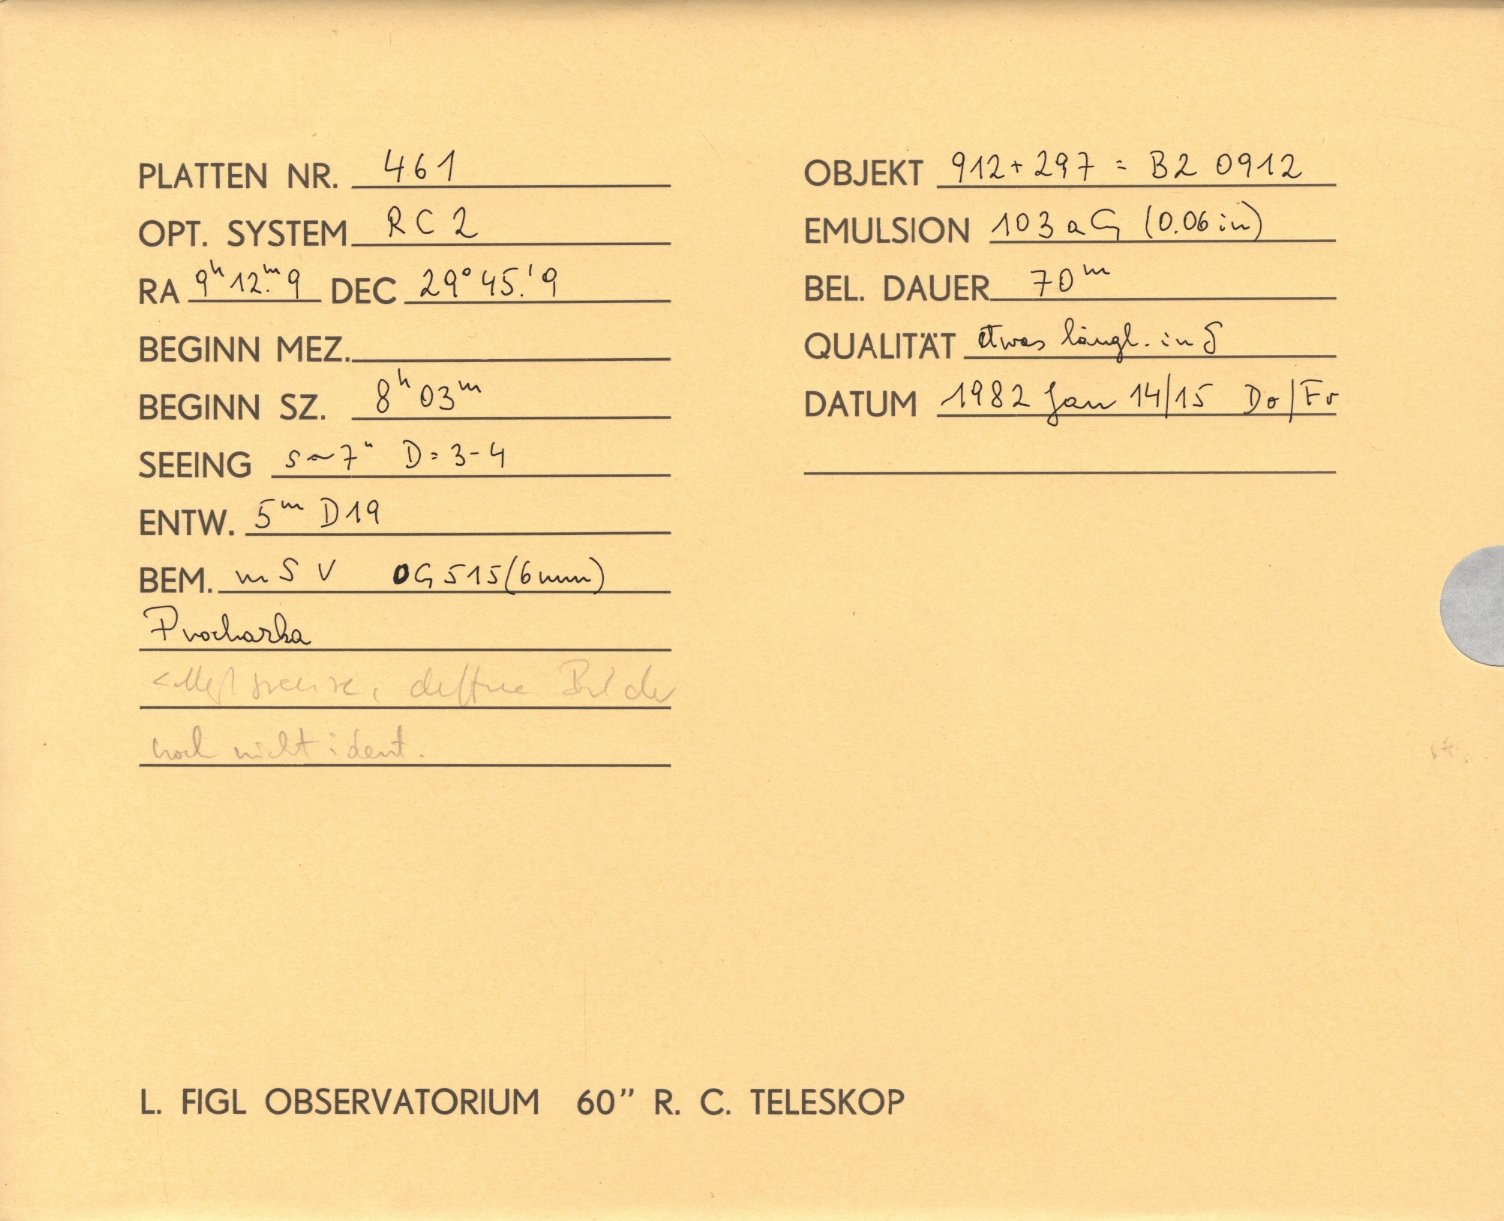 PLATTEN NR. 461
OPT. SYSTEM RC 2
RA 9ʰ12ᵐ.9 DEC 29°45.'9
BEGINN MEZ.
BEGINN SZ. 8ʰ03ᵐ
SEEING s~7" D=3-4
ENTW. 5ᵐ D19
BEM. m S V OG515(6mm)
Procharka
Bilder
noch nicht ident.
OBJEKT 912+297 = B2 0912
EMULSION 103aG (0.06 in)
BEL. DAUER 70ᵐ
QUALITÄT etwas längl. in δ
DATUM 1982 Jan 14/15 Do/Fr
L. FIGL OBSERVATORIUM 60" R. C. TELESKOP